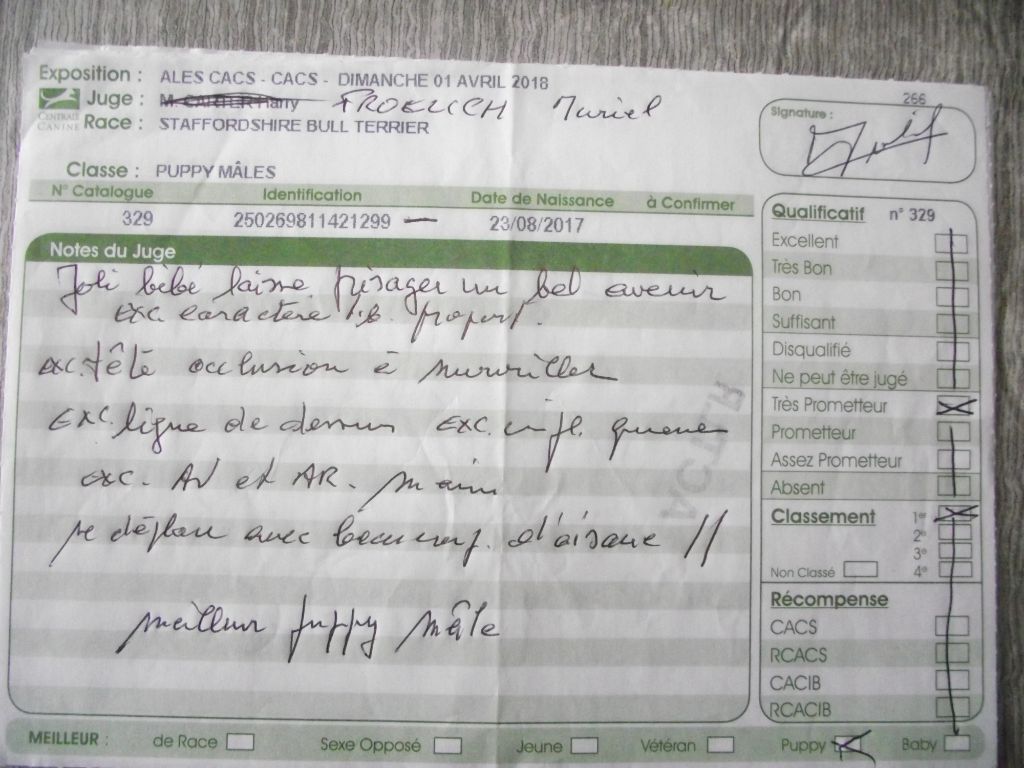 Exposition : ALES CACS - CACS - DIMANCHE 01 AVRIL 2018
Juge : M. CARTER Harry FROELICH Muriel
CENTRALE CANINE
Race : STAFFORDSHIRE BULL TERRIER
Classe : PUPPY MÂLES
N° Catalogue Identification Date de Naissance à Confirmer
329 250269811421299 — 23/08/2017
Notes du Juge
Joli bébé laisse présager un bel avenir
exc. caractère t.b. proport.
exc. tête occlusion à surveiller
exc. ligne de dessus exc. queue
exc. AV et AR. main
se déplace avec beaucoup. d'aisance //
meilleur puppy mâle
266
Signature :
Qualificatif n° 329
Excellent
Très Bon
Bon
Suffisant
Disqualifié
Ne peut être jugé
Très Prometteur
Prometteur
Assez Prometteur
Absent
Classement 1er
2e
3e
Non Classé 4e
Récompense
CACS
RCACS
CACIB
RCACIB
MEILLEUR : de Race Sexe Opposé Jeune Vétéran Puppy Baby